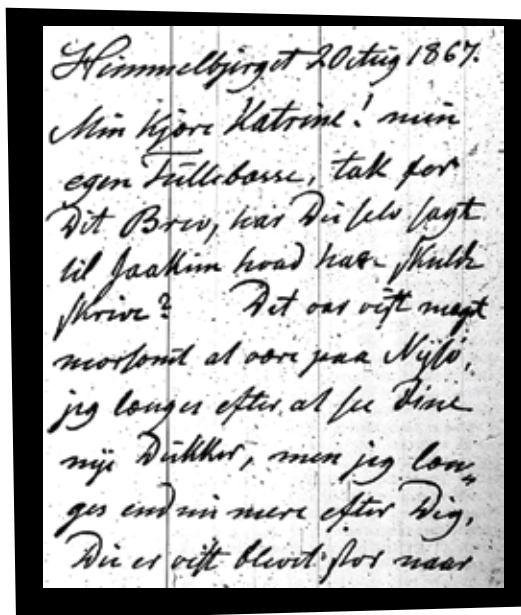 Himmelbjerget 20 Aug 1867.
Min kjære Katrine! min
egen Tullebasse, tak for
Dit Brev, har Du selv sagt
til Joakim hvad han skulde
skrive? Det var vist megt
morsomt at være paa Nysø,
jeg længes efter at see Dine
nye Dukker, men jeg læn„
ges endnu mere efter Dig,
Du er vist blevet stor naar